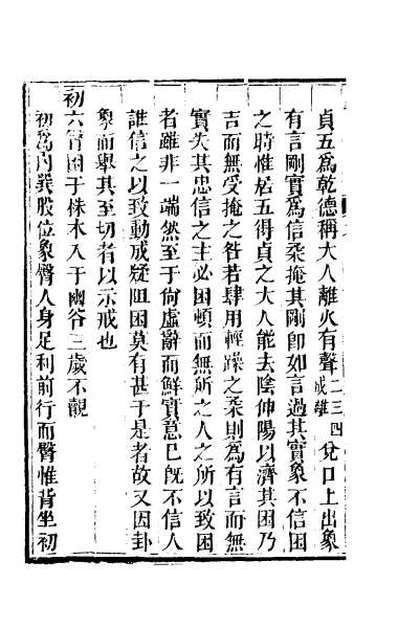 貞五為乾德稱大人離火有聲二三四成離兌口上出象
有言剛實為信柔掩其剛卽如言過其實象不信困
之時惟居五得貞之大人能去陰伸陽以濟其困乃
吉而無受掩之咎若肆用輕躁之柔則為有言而無
實失其忠信之主必困頓而無所之人之所以致困
者雖非一端然至于尙虛辭而鮮實意己旣不信人
誰信之以致動成疑阻困莫有甚于是者故又因卦
象而舉其至切者以示戒也
初六臀困于株木入于幽谷三歲不覿
初為內巽股位象臀人身足利前行而臀惟背坐初